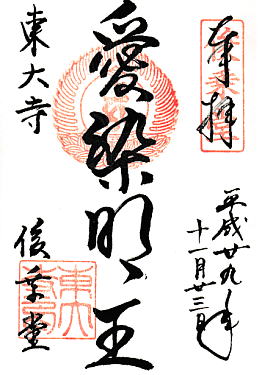 奉拝
平成廿九年
十一月廿三日
愛染明王
東大寺
俊乗堂